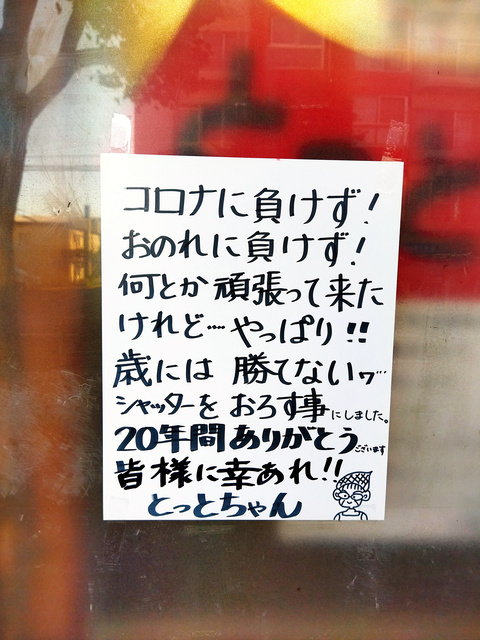 コロナに負けず!
おのれに負けず!
何とか頑張って来た
けれど…やっぱり!!
歳には勝てないヮ…
シャッターをおろす事にしました。
20年間ありがとうございます
皆様に幸あれ!!
とっとちゃん